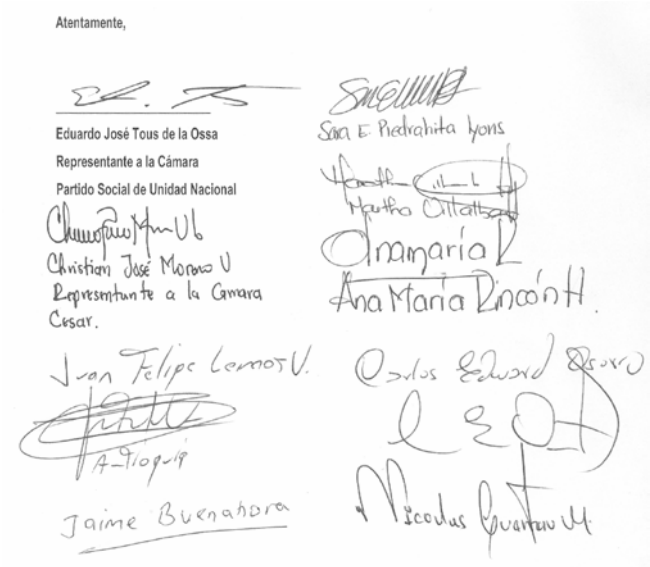 Atentamente,
Eduardo José Tous de la Ossa
Representante a la Cámara
Partido Social de Unidad Nacional
Christian José Moreno V
Representante a la Camara
Cesar.
Juan Felipe Lemos V.
Antioquia
Jaime Buenahora
Sara E. Piedrahita Lyons
Martha Villalba
Anamaría R
Ana María Rincón H.
Carlos Edward Osorio
Nicolas Guerrero M.